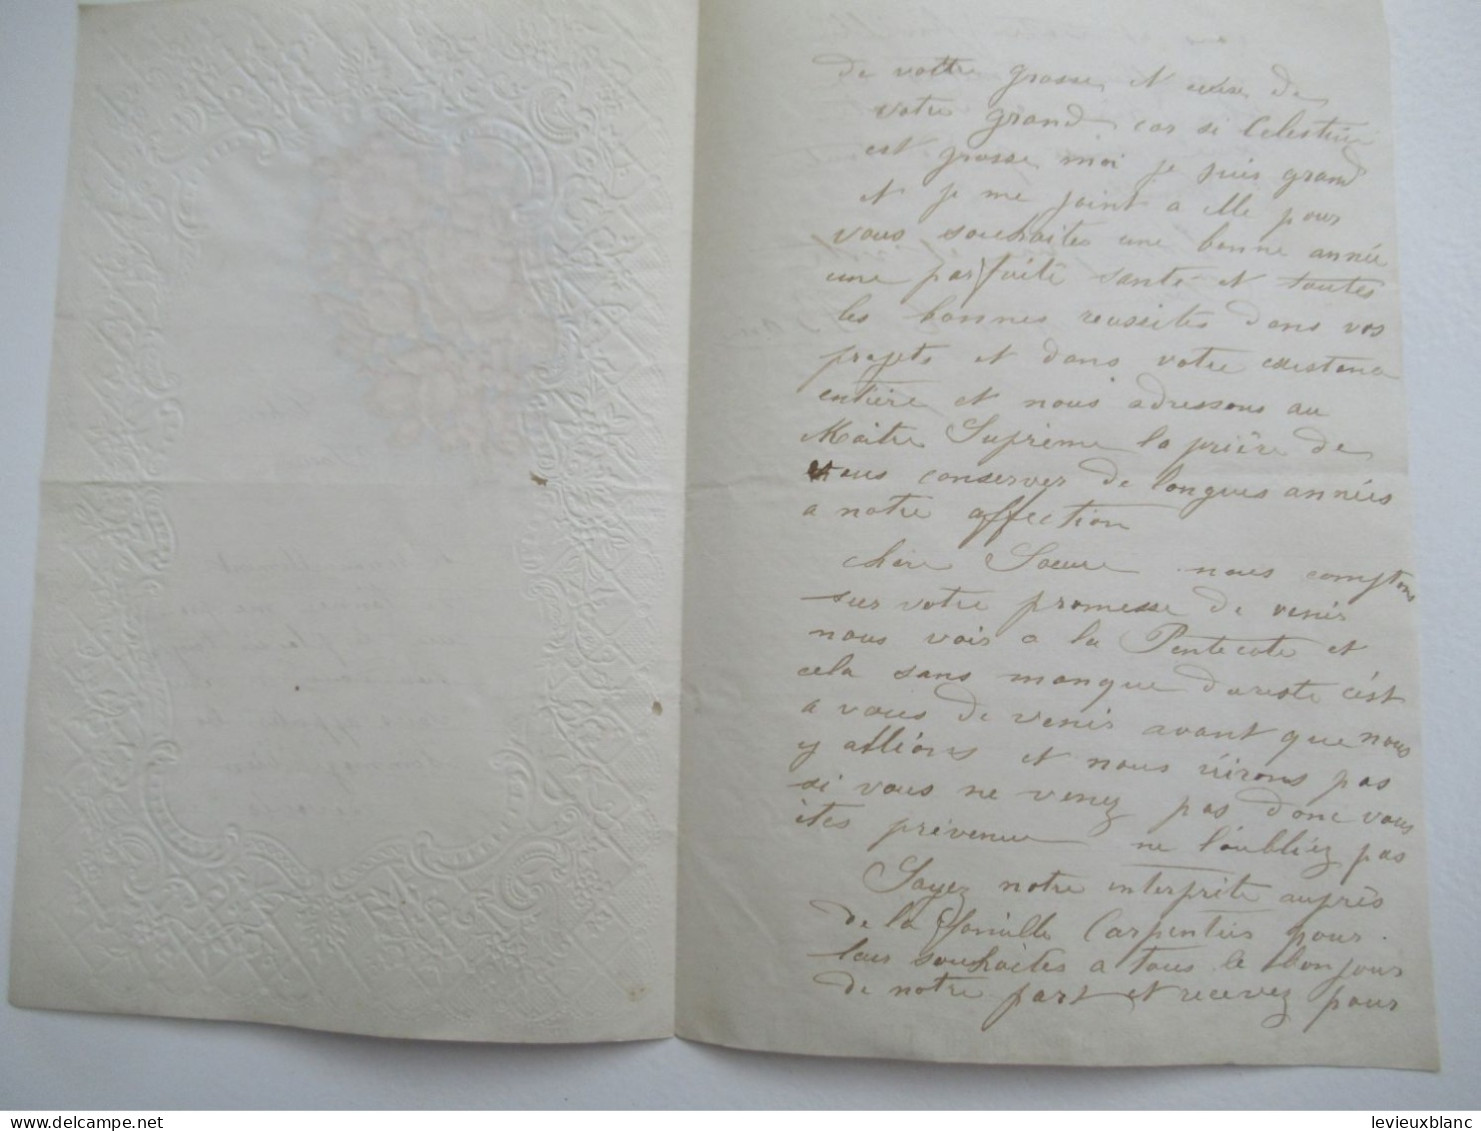 de vottre grosse et aussi de
votre grand car si Celestine
est grosse moi je suis grand
et je me joint a elle pour
vous souhaites une bonne année
une parfaite sante et toutes
les bonnes reussites dans vos
projets et dans votre existence
entière et nous adressons au
Maitre Suprème la prière de
vous conserver de longues années
a notre affection
Chère Soeure nous comptons
sur votre promesse de venir
nous voir a la Pentecote et
cela sans manque dureste c'est
a vous de venir avant que nous
y allions et nous n'irons pas
si vous ne venez pas donc vous
ètes prévenue ne l'oubliez pas
Soyez notre interprite auprès
de la famille Carpentier pour
leur souhaites a tous le bonjour
de notre part et recevez pour
levieuxblanc